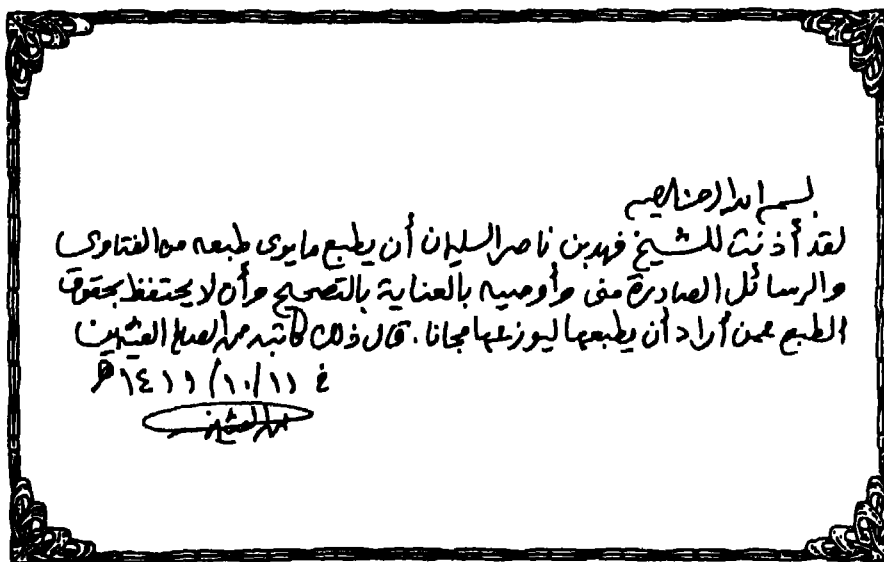 بسم الله الرحمن الرحيم
لقد أذنت للشيخ فهد بن ناصر السليمان أن يطبع ما يرى طبعه من الفتاوى
والرسائل الصادرة مني وأوصيه بالعناية بالتصحيح وأن لا يحتفظ بحقوق
الطبع عمن أراد أن يطبعها ليوزعها مجانا. قال ذلك كاتبه محمد الصالح العثيمين
في ١٤١١/١٠/١١ هـ
محمد العثيمين